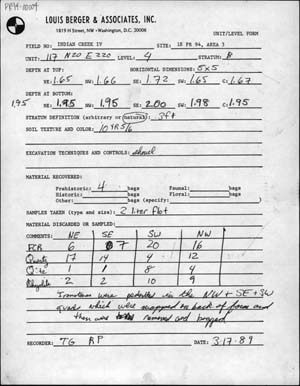 PP94-10004
LOUIS BERGER & ASSOCIATES, INC.
1819 H Street, NW · Washington, D.C. 20006
UNIT/LEVEL FORM
FIELD NO: INDIAN CREEK IV SITE: 18 PR 94, AREA 3
UNIT: 117 N20 E220 LEVEL: 4 STRATUM: B
DEPTH AT TOP: HORIZONTAL DIMENSIONS: 5x5
SE: 1.65 NW: 1.66 SE: 1.72 SW: 1.65 C: 1.67
DEPTH AT BOTTOM:
1.95 1.95 1.95 SE: 2.00 SW: 1.98 C: 1.95
STRATUM DEFINITION (arbitrary or natural): .3ft
SOIL TEXTURE AND COLOR: 10YR 5/6
EXCAVATION TECHNIQUES AND CONTROLS: shovel
MATERIAL RECOVERED:
Prehistoric: 4 bags Faunal: bags
Historic: bags Floral: bags
Other: bags (specify: )
SAMPLES TAKEN (type and size): 2 liter flot
MATERIAL DISCARDED OR SAMPLED:
COMMENTS: NE SE SW NW
FCR 6 7 20 16
Quartz 17 14 4 12
Q'ite 1 1 8 4
Rhyolite 2 2 10 9
Ironstone were in the NW + SE + SW
quads which were mapped to back of form and
then were removed and bagged
RECORDER: TG RP DATE: 3·17·89